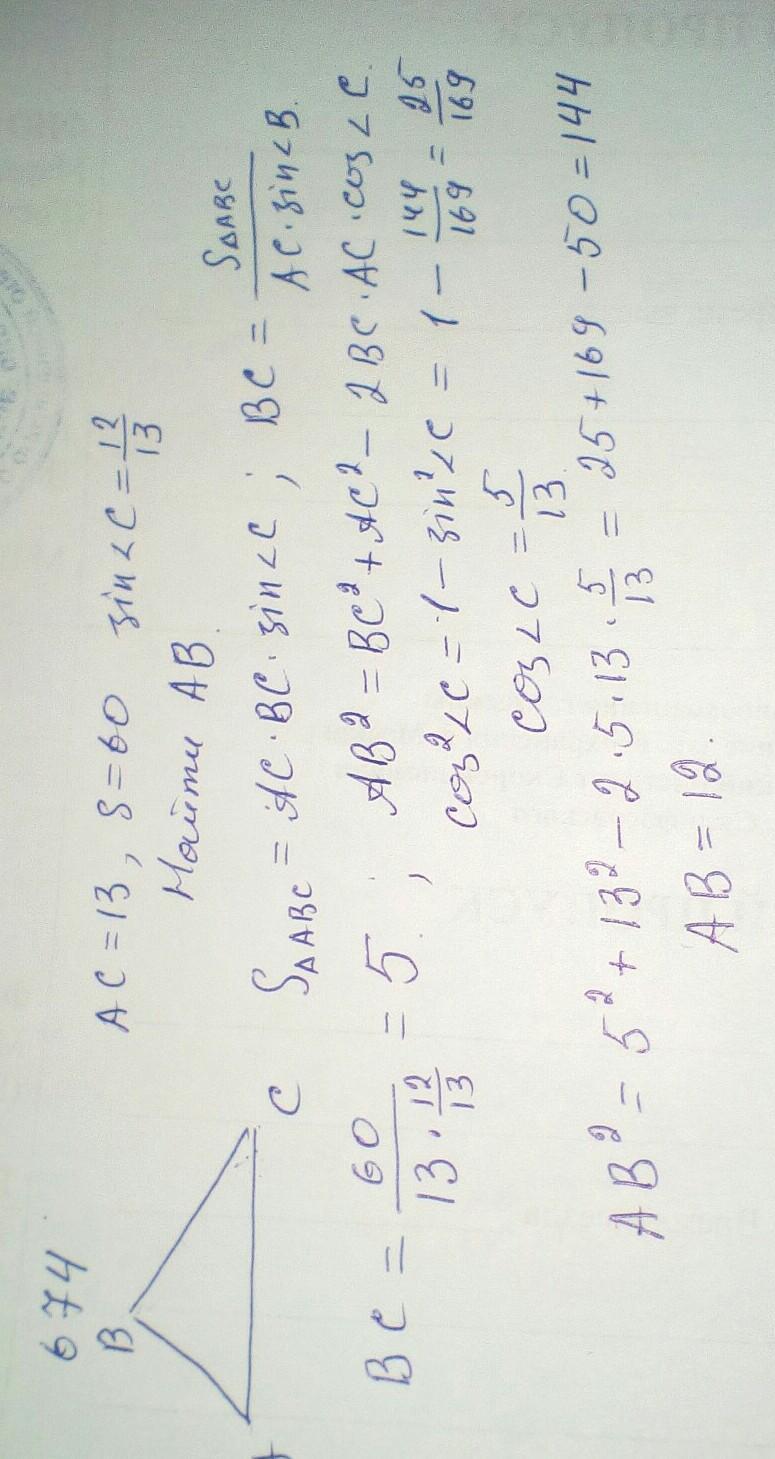 674
AC = 13, S = 60 sin∠C = 12/13
Найти AB
B
C
S△ABC = AC · BC · sin∠C ; BC = S△ABC / AC · sin∠B.
BC = 60 / 13 · 12/13 = 5. ; AB² = BC² + AC² - 2BC · AC · cos∠C.
cos²∠C = 1 - sin²∠C = 1 - 144/169 = 25/169
cos∠C = 5/13
AB² = 5² + 13² - 2·5·13 · 5/13 = 25 + 169 - 50 = 144
AB = 12.